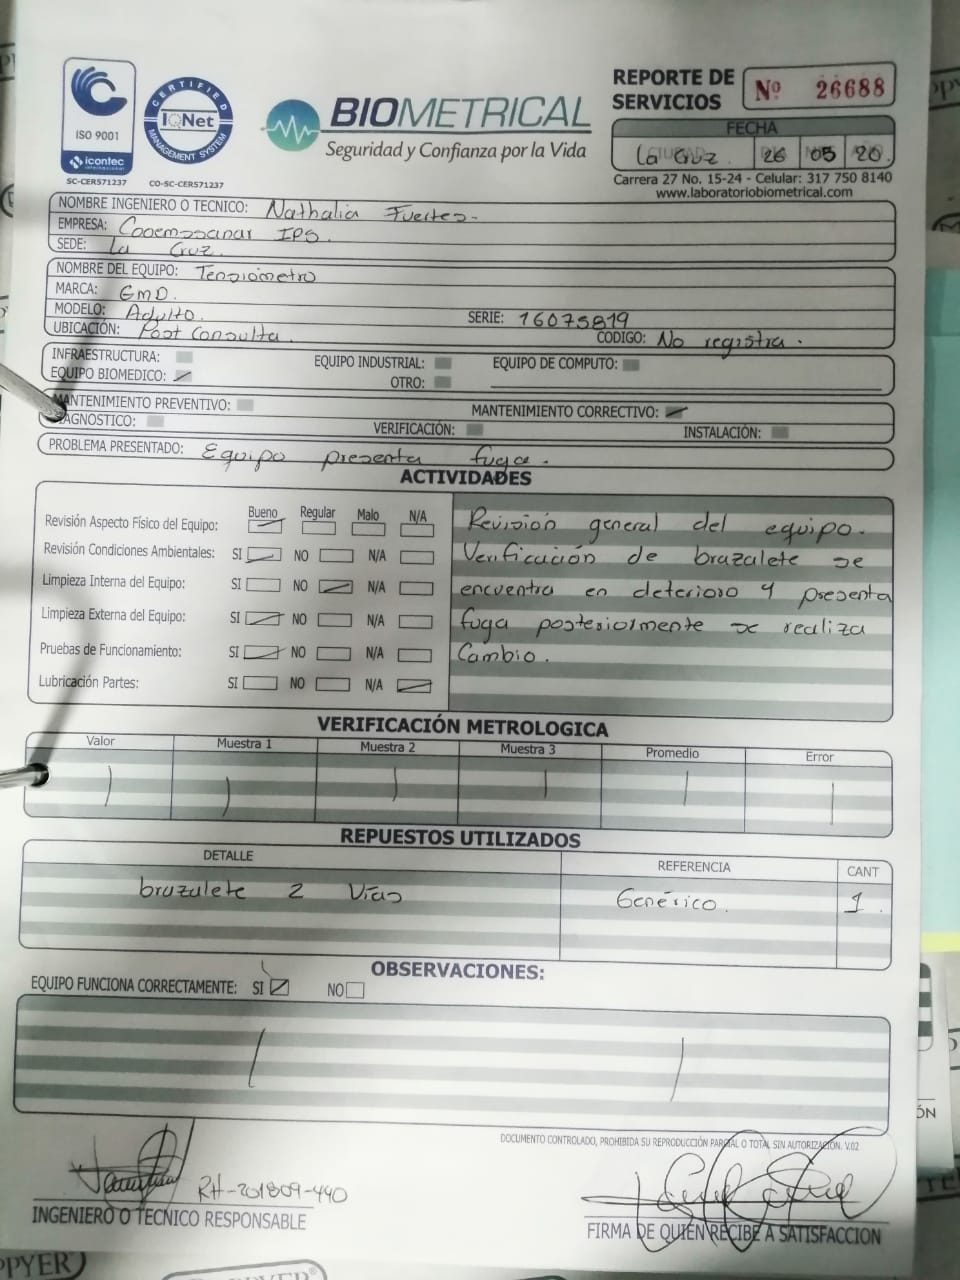 ISO 9001
icontec
SC-CER571237
CERTIFIED
IQNet
MANAGEMENT SYSTEM
CO-SC-CER571237
BIOMETRICAL
Seguridad y Confianza por la Vida
REPORTE DE
SERVICIOS
Nº 26688
FECHA
La Cruz. 26 05 20.
Carrera 27 No. 15-24 - Celular: 317 750 8140
www.laboratoriobiometrical.com
NOMBRE INGENIERO O TECNICO: Nathalia Fuertes-
EMPRESA: Cooemssanar IPS.
SEDE: La Cruz.
NOMBRE DEL EQUIPO: Tensiómetro
MARCA: GMD.
MODELO: Adulto. SERIE: 16075819
UBICACIÓN: Post Consulta. CODIGO: No registra.
INFRAESTRUCTURA: EQUIPO INDUSTRIAL: EQUIPO DE COMPUTO:
EQUIPO BIOMEDICO: OTRO:
MANTENIMIENTO PREVENTIVO: MANTENIMIENTO CORRECTIVO:
DIAGNOSTICO: VERIFICACIÓN: INSTALACIÓN:
PROBLEMA PRESENTADO: Equipo presenta fuga.
ACTIVIDADES
Bueno Regular Malo N/A
Revisión Aspecto Físico del Equipo:
Revisión Condiciones Ambientales: SI NO N/A
Limpieza Interna del Equipo: SI NO N/A
Limpieza Externa del Equipo: SI NO N/A
Pruebas de Funcionamiento: SI NO N/A
Lubricación Partes: SI NO N/A
Revisión general del equipo.
Verificación de brazalete se
encuentra en deterioro y presenta
fuga posteriormente se realiza
Cambio.
VERIFICACIÓN METROLOGICA
Valor Muestra 1 Muestra 2 Muestra 3 Promedio Error
REPUESTOS UTILIZADOS
DETALLE REFERENCIA CANT
brazalete 2 Vías Genérico. 1.
OBSERVACIONES:
EQUIPO FUNCIONA CORRECTAMENTE: SI NO
DOCUMENTO CONTROLADO, PROHIBIDA SU REPRODUCCIÓN PARCIAL O TOTAL SIN AUTORIZACIÓN. V.02
RH-201809-440
INGENIERO O TECNICO RESPONSABLE
FIRMA DE QUIEN RECIBE A SATISFACCION